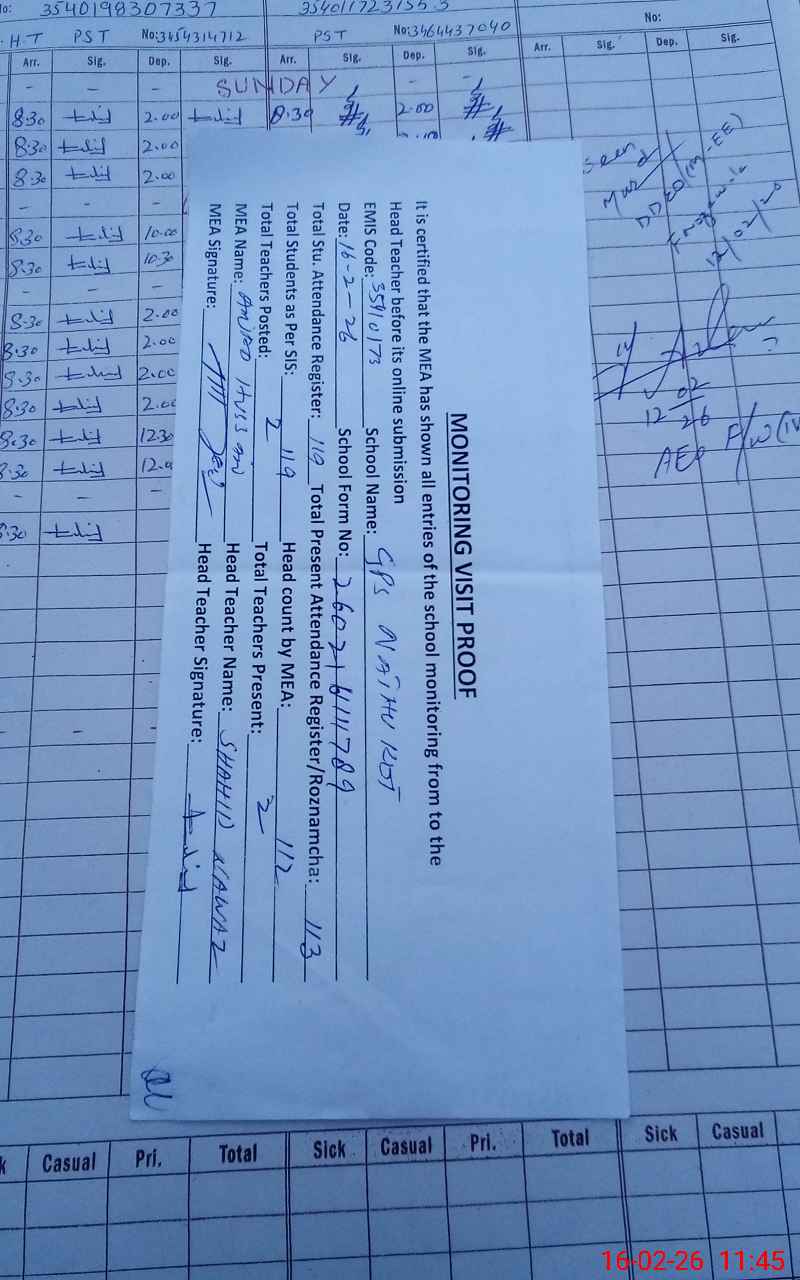 No: 3540198307337
H.T PST No:3454314712 PST No:3464437040 No:
Arr. Sig. Dep. Sig. Arr. Sig. Dep. Sig. Arr. Sig. Dep. Sig.
- - - SUNDAY - -
8:30 2.00 8:30 2.00
8:30 2.00
8:30 2.00
- - -
8:30 10.00
8:30 10.30
- - -
8:30 2.00
8:30 2.00
8:30 2.00
8:30 2.00
8:30 12.30
8:30 12.0
- - -
8:30
Seen
12-02-26
AEO
MONITORING VISIT PROOF
It is certified that the MEA has shown all entries of the school monitoring from to the
Head Teacher before its online submission
EMIS Code: 35410173 School Name: GPS NATHU KOT
Date: 16-2-26 School Form No: 26021611789
Total Stu. Attendance Register: 119 Total Present Attendance Register/Roznamcha: 113
Total Students as Per SIS: 119 Head count by MEA: 112
Total Teachers Posted: 2 Total Teachers Present: 2
MEA Name: AMJAD HUSSAIN Head Teacher Name: SHAHID NAWAZ
MEA Signature: Head Teacher Signature:
Casual Pri. Total Sick Casual Pri. Total Sick Casual
16-02-26 11:45